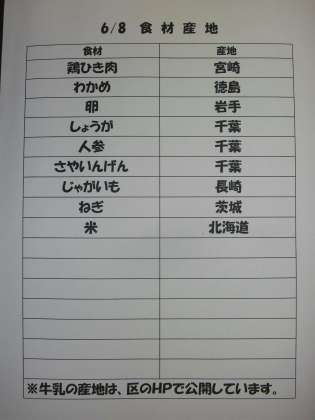 6/8 食材産地
食材 産地
鶏ひき肉 宮崎
わかめ 徳島
卵 岩手
しょうが 千葉
人参 千葉
さやいんげん 千葉
じゃがいも 長崎
ねぎ 茨城
米 北海道
※牛乳の産地は、区のHPで公開しています。